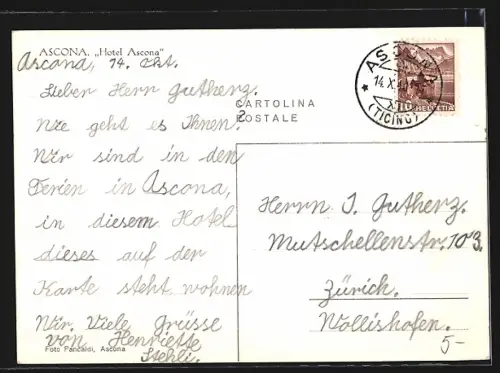 ASCONA. „Hotel Ascona"
Ascona, 14. Okt.
Lieber Herr Gutherz.
Wie geht es Ihnen?
Wir sind in den
Ferien in Ascona,
in diesem Hotel
dieses auf der
Karte steht wohnen
Wir. Viele Grüsse
von Henriette
Stehli.
Foto Pancaldi, Ascona
CARTOLINA
POSTALE
14.X
(TICINO)
HELVETIA
10
Herrn J. Gutherz.
Mutschellenstr. 103.
Zürich.
Wollishofen.
5-